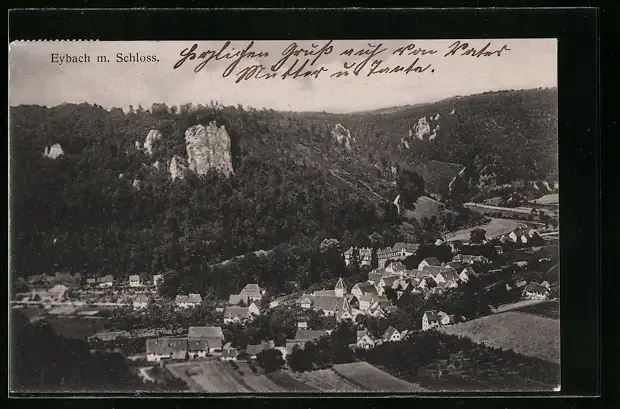 Eybach m. Schloss.
Herzlichen Gruß auf von Vater
Mutter u Tante.